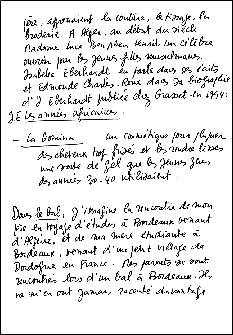 père, apprenaient la couture, le tissage, la
broderie. A Alger, au début du siècle
Madame Luce Ben Aben tenait un célèbre
ouvroir pour les jeunes filles musulmanes.
Isabelle Eberhardt en parle dans ses écrits
et Edmonde Charles-Roux dans sa biographie
d'I Eberhardt publiée chez Grasset en 1994:
I.E les années africaines.
- La Gomina un cosmétique pour plaquer
des cheveux trop frisés et les rendre lisses
une sorte de gel que les jeunes gens
des années 30-40 utilisaient.
Dans le bal, j'imagine la rencontre de mon
père en voyage d'études à Bordeaux venant
d'Algérie, et de ma mère étudiante à
Bordeaux, venant d'un petit village de
Dordogne en France. Mes parents se sont
rencontrés lors d'un bal à Bordeaux. Ils
ne m'en ont jamais raconté davantage.